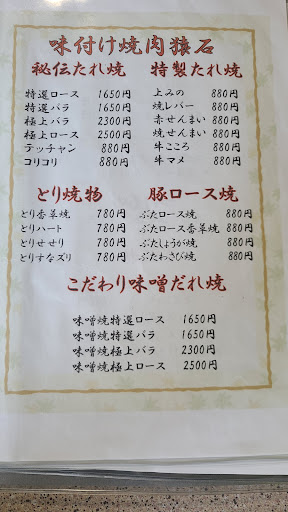 味付け焼肉猿石
秘伝たれ焼
特選ロース 1650円
特選バラ 1650円
極上バラ 2300円
極上ロース 2500円
テッチャン 880円
コリコリ 880円
特製たれ焼
上みの 880円
焼レバー 880円
赤せんまい 880円
焼せんまい 880円
牛こころ 880円
牛マメ 880円
とり焼物
とり香草焼 780円
とりハート 780円
とりせせり 780円
とりすなズリ 780円
豚ロース焼
ぶたロース焼 880円
ぶたロース香草焼 880円
ぶたしょうが焼 880円
ぶたわさび焼 880円
こだわり味噌だれ焼
味噌焼特選ロース 1650円
味噌焼特選バラ 1650円
味噌焼極上バラ 2300円
味噌焼極上ロース 2500円